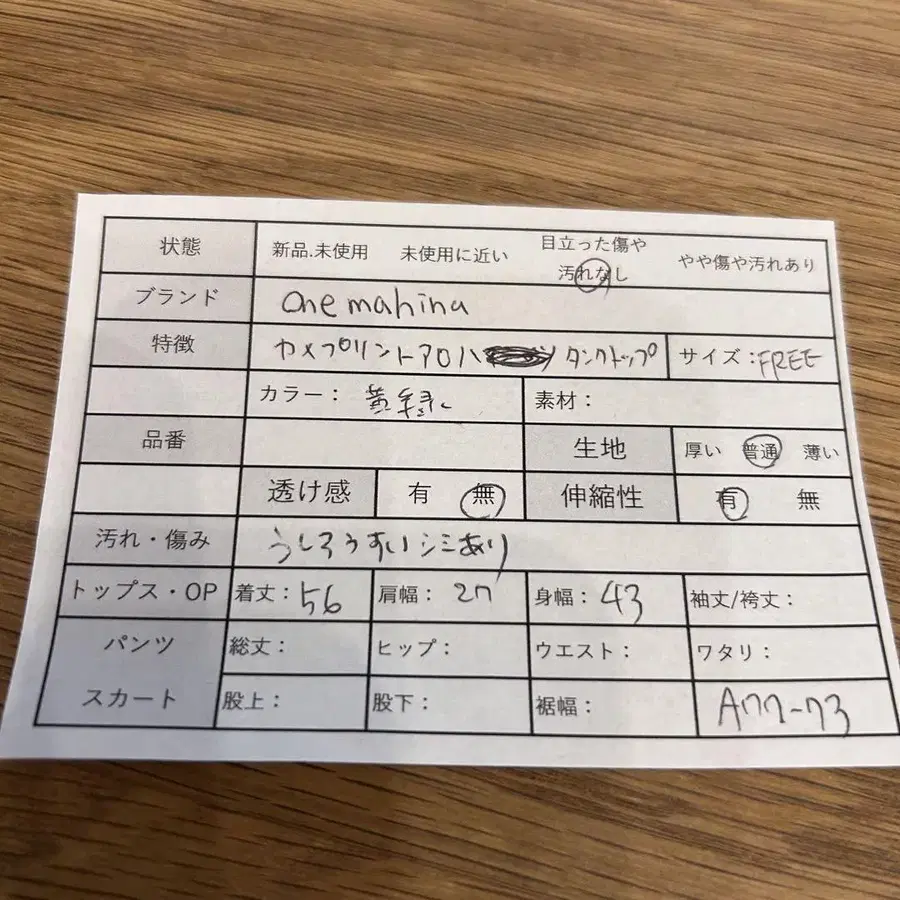 状態 新品.未使用 未使用に近い 目立った傷や汚れなし やや傷や汚れあり
ブランド One mahina
特徴 カメプリントアロハ タンクトップ サイズ:FREE
カラー: 黄緑 素材:
品番 生地 厚い 普通 薄い
透け感 有 無 伸縮性 有 無
汚れ・傷み うしろうすいシミあり
トップス・OP 着丈:56 肩幅: 27 身幅: 43 袖丈/裄丈:
パンツ 総丈: ヒップ: ウエスト: ワタリ:
スカート 股上: 股下: 裾幅: A77-73